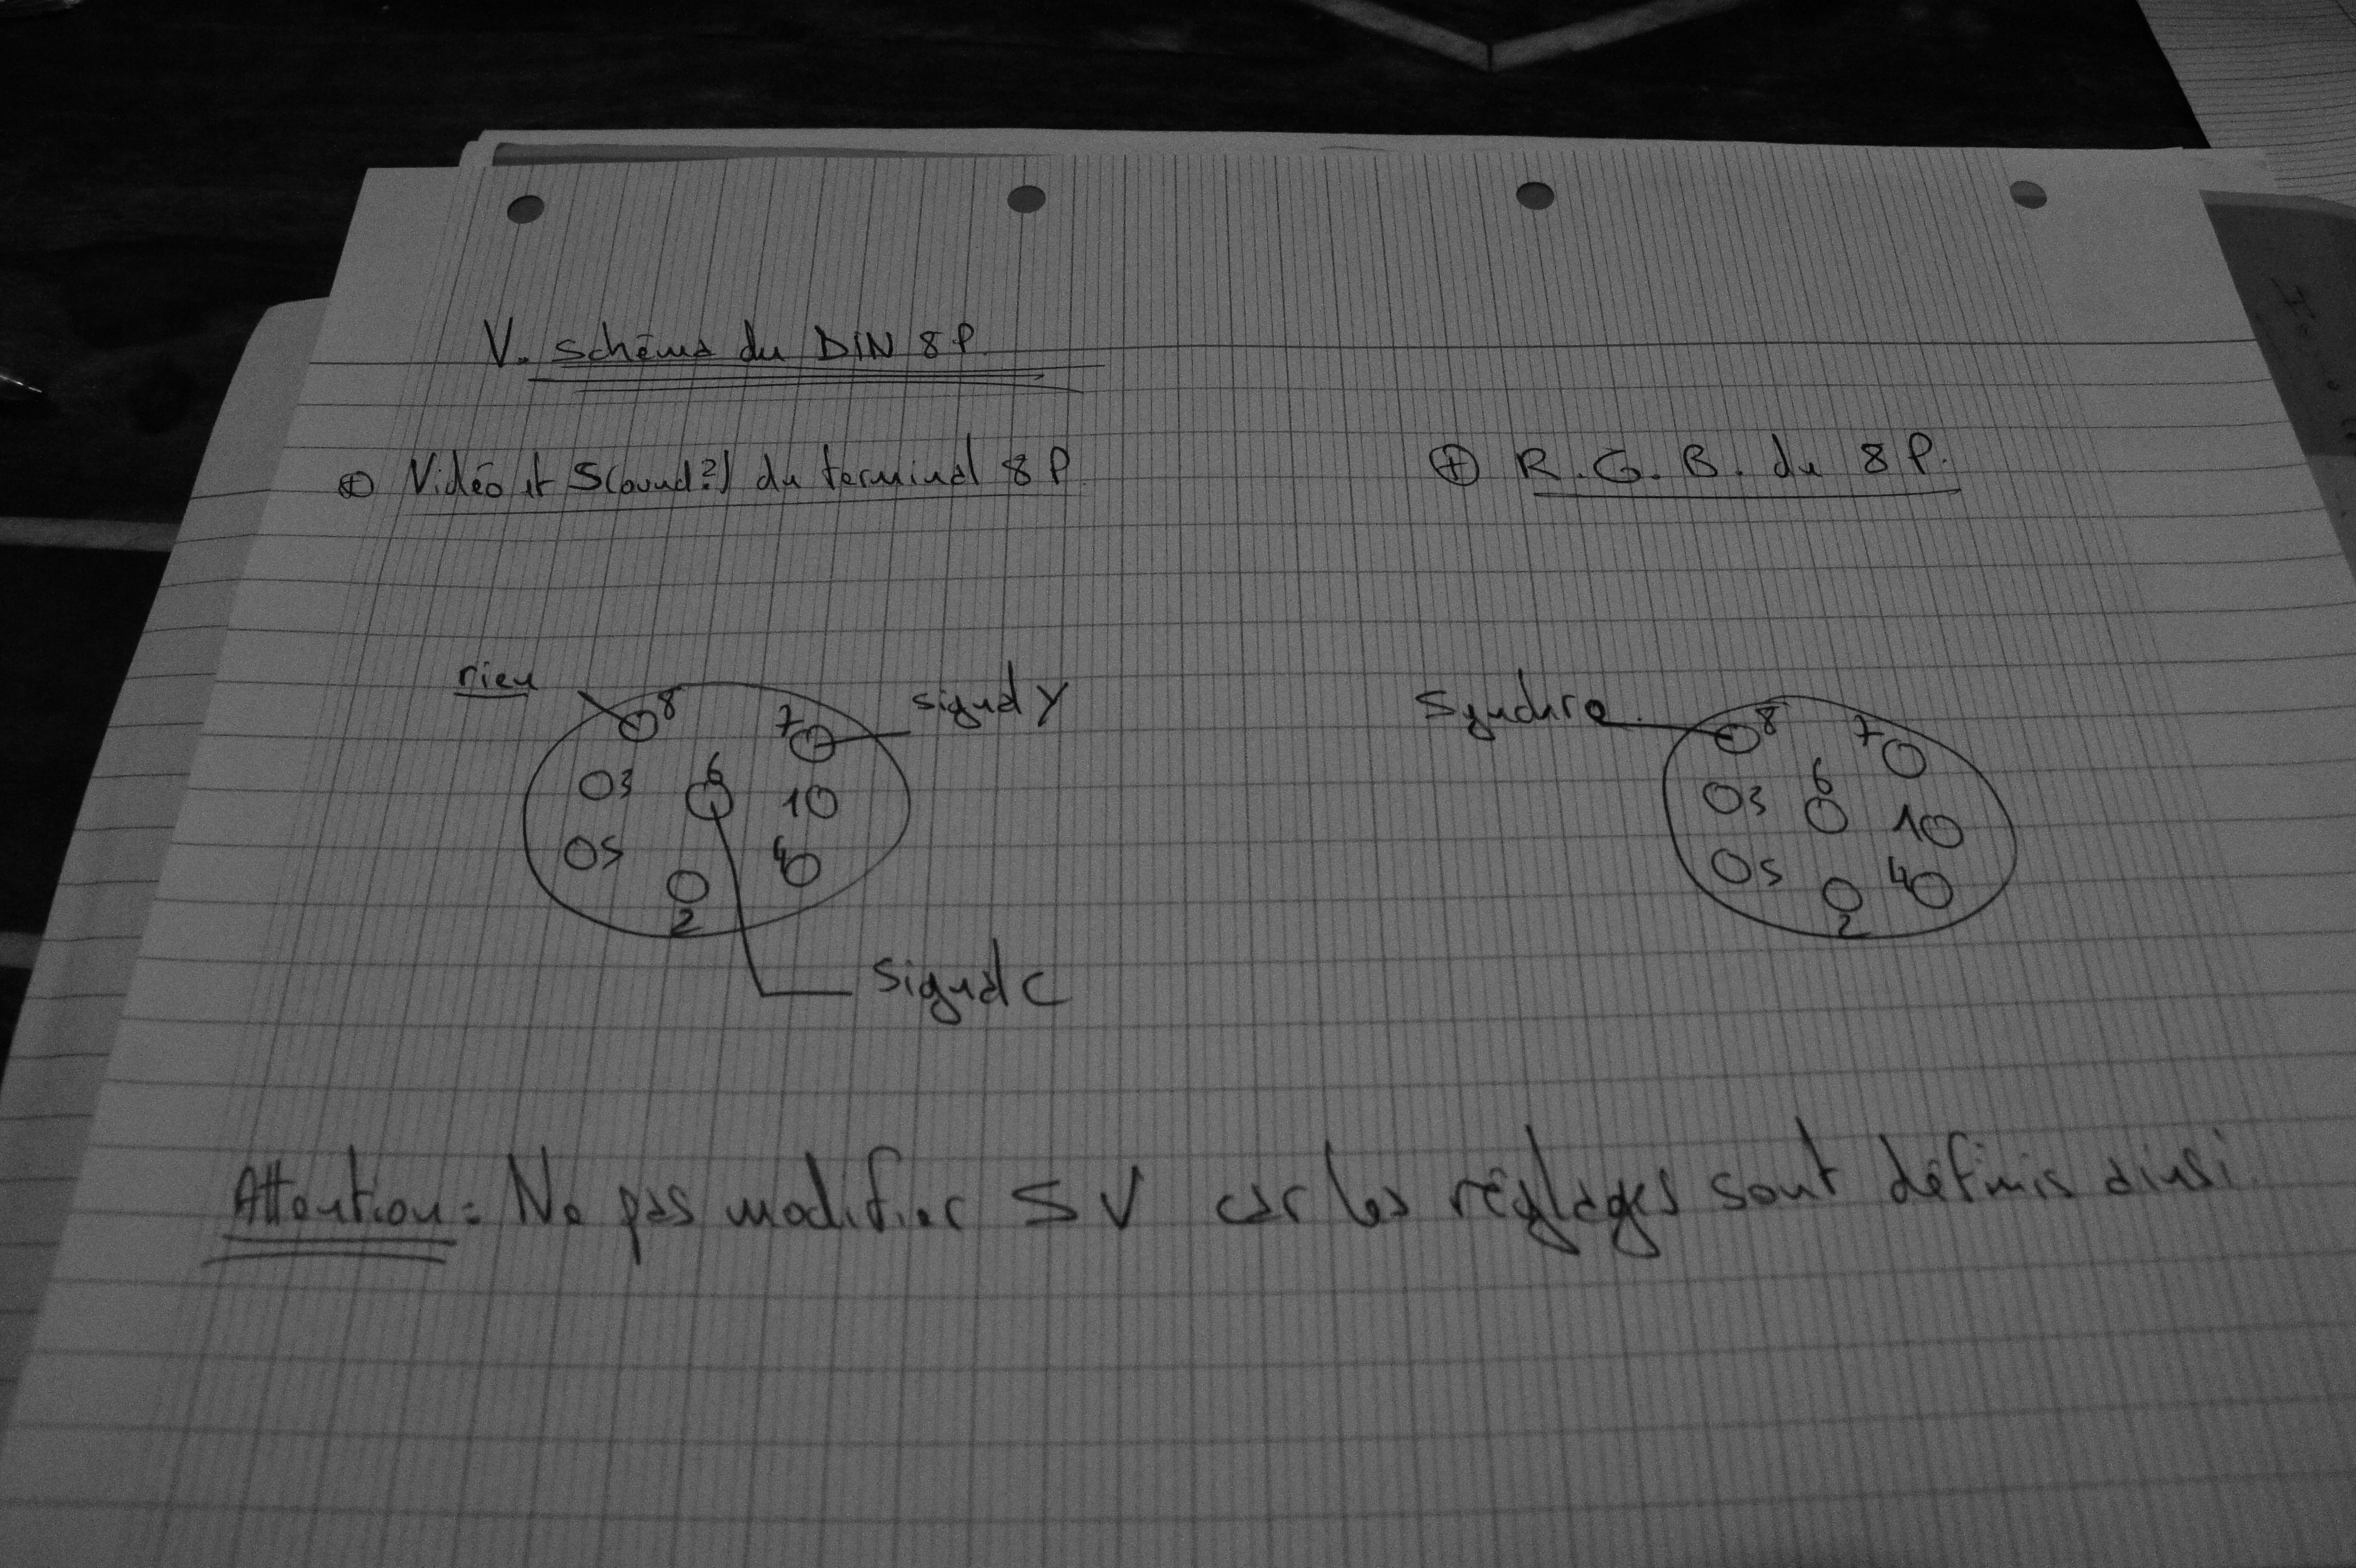 V. Schéma du DIN 8 P.
⊕ Vidéo et S(ound?) du terminal 8 P.
⊕ R.G.B. du 8 P.
rien
8
7
signal Y
3
6
1
5
4
2
signal C
Synchro
8
7
3
6
1
5
4
2
Attention : Ne pas modifier SV car les réglages sont définis ainsi.